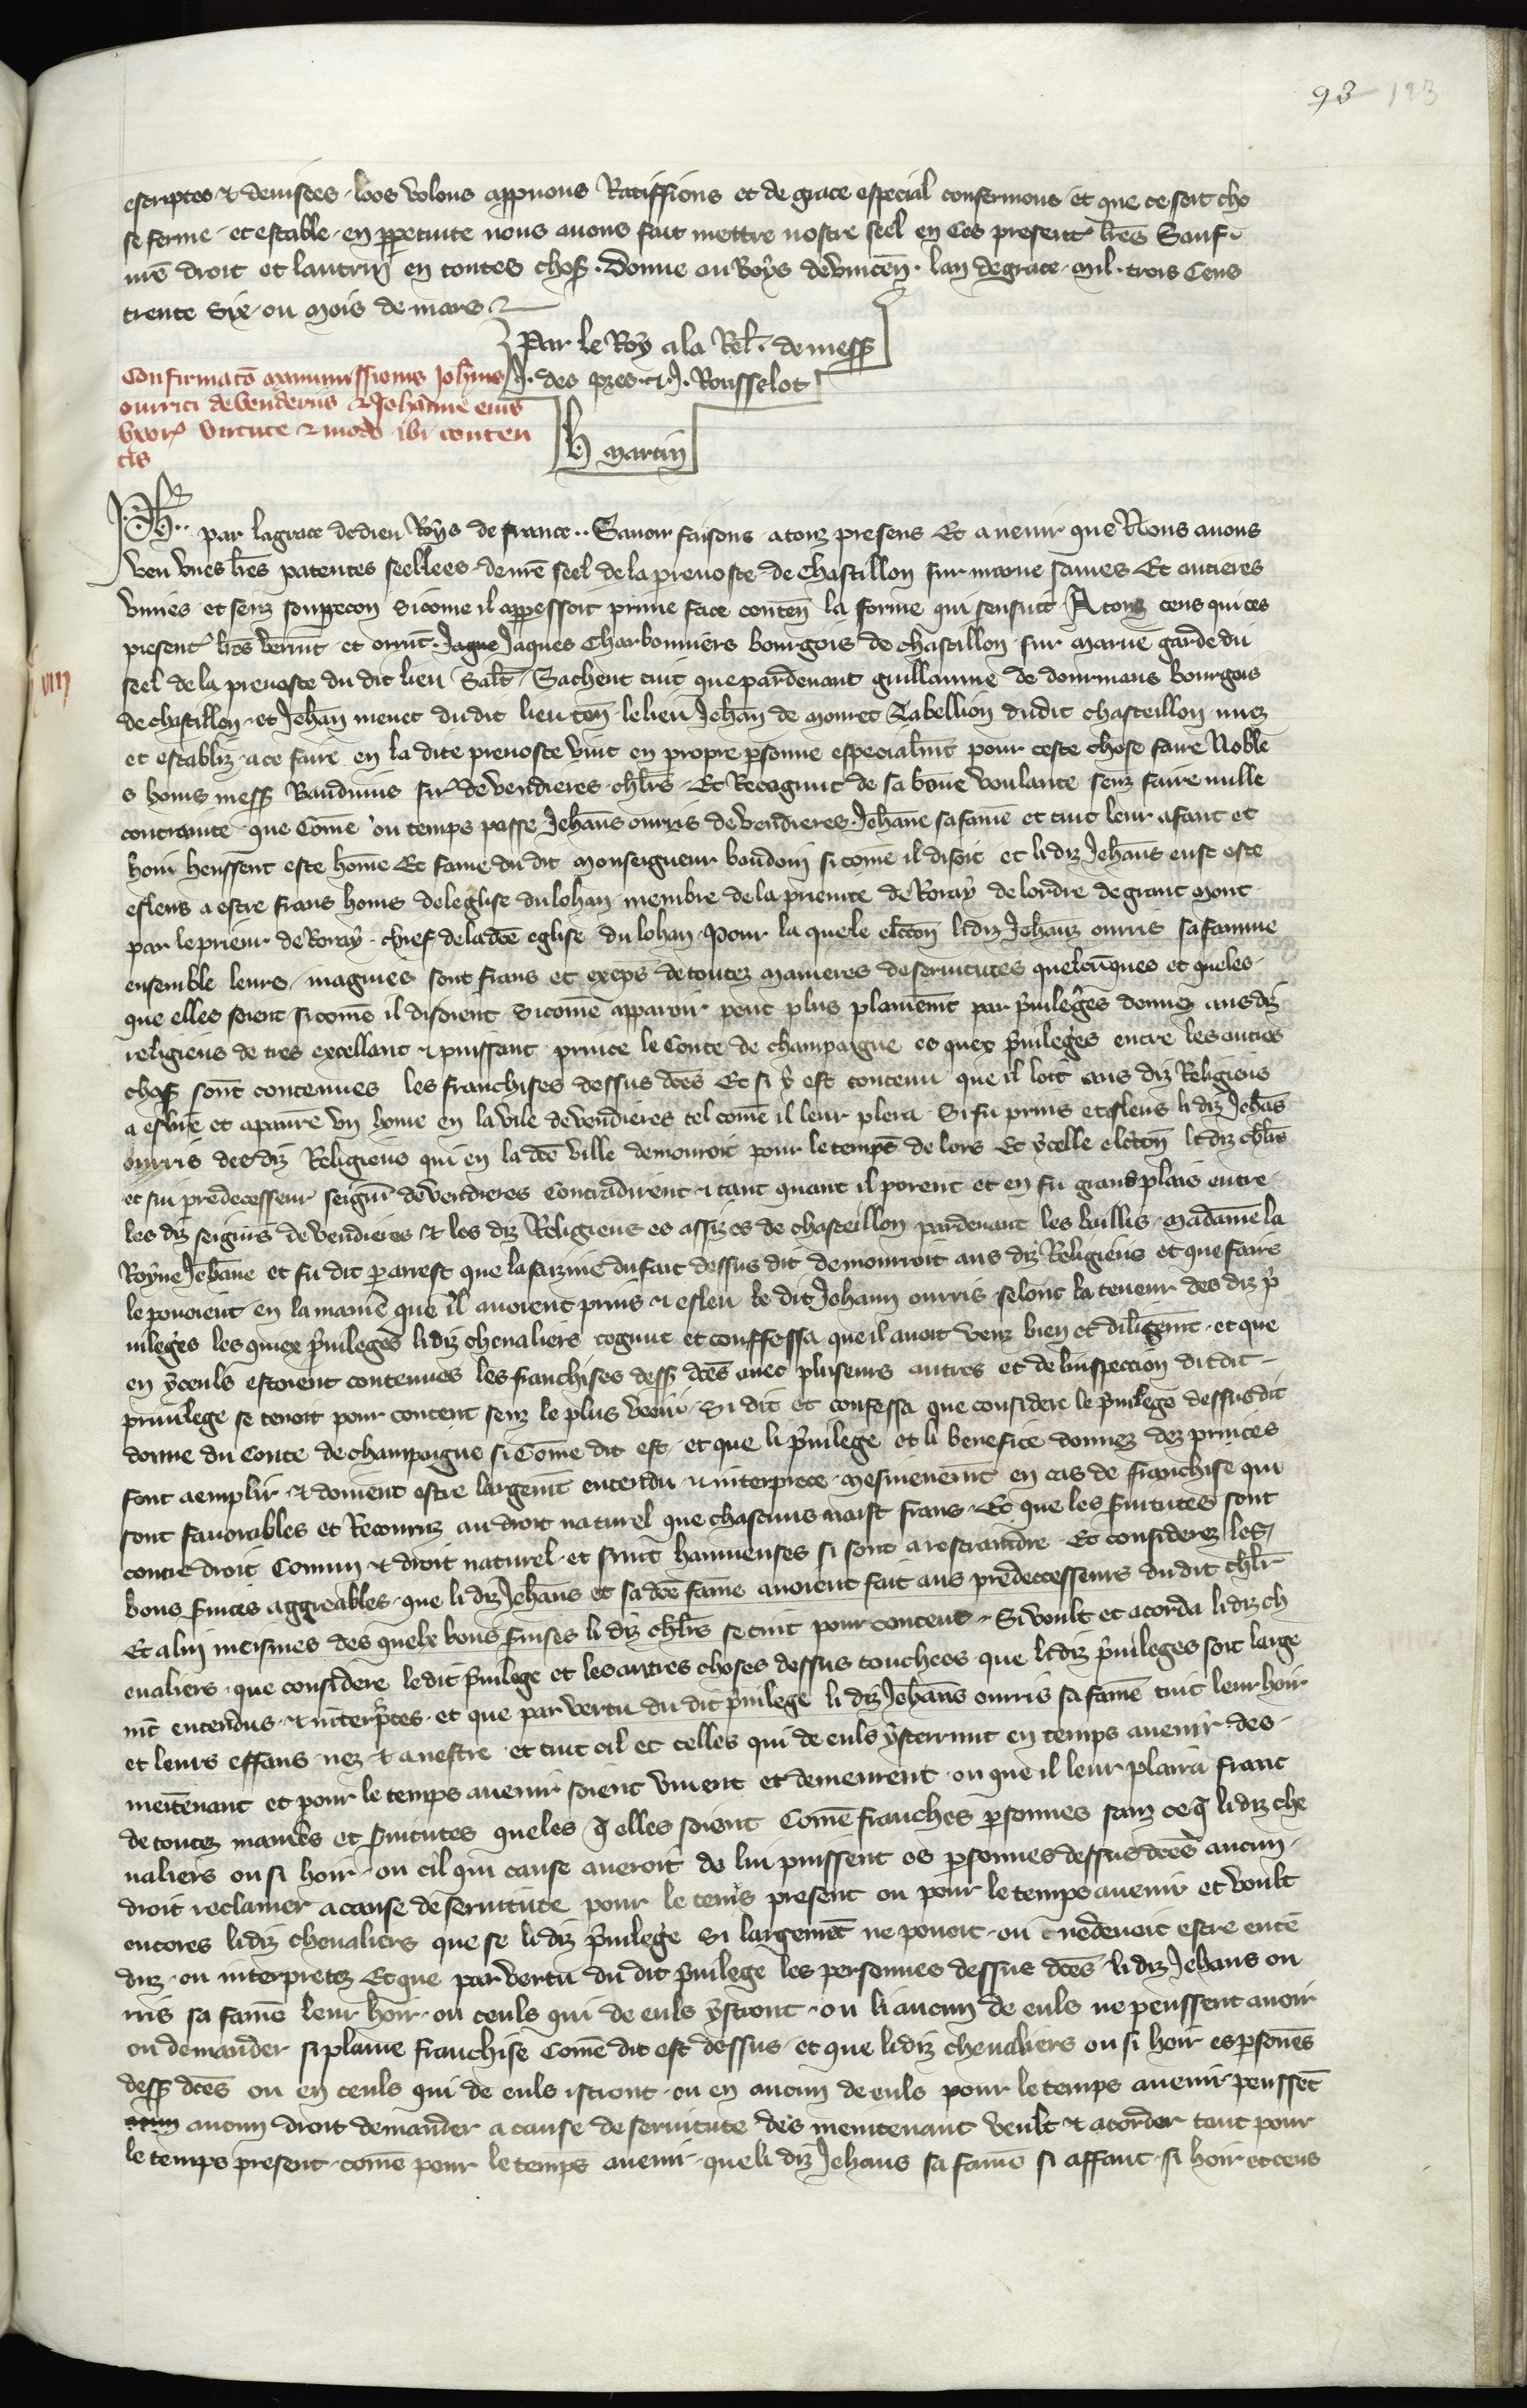 93 123
escriptes & deuisees loos volons appruons Ratiffions et de grace especial confermons et que ce soit cho
se ferme et estable en ppetuite nous auons fait mettre nostre seel en Ces present lrēs Sauf
nrē droit et lautrui en toutes chos. Donne au Boys de vincēn. lan de grace mil trois Cens
trente Six ou mois de mars
Par le Roy a la Rel. de mess
J. des pres & J. Rousselot
Confirmatō manumissionis Joh̄nis
ourrici de venderiis & Johāne eius
vxor virtute & modo ibi conten
tis
H martin
Ph. par la grace de dieu Roys de france Sauoir faisons a touz presens Et auenir que Nous auons
veu vnes lrēs patentes seellees de nrē seel de la preuoste de Chastillon sur marne saines Et entieres
viuies et senz souppecon sicome il apperessoit prime face contēn la forme qui sensuit A touz ceus qui ces
present lrēs verrūt et orrūt Jaque Jaques Charbonniers bourgois de chastillon sur marne garde du
seel de la preuoste du dit lieu Salt Sachent tuit que pardeuant guillaume de dourmans bourgois
de chastillon et Jehān menet du dit lieu tēn le lieu Jehān de mouret Tabellion du dit chasteillon mez
et establiz a ce faire en la dite preuoste vint en propre psonne especialmēt pour ceste chose faire Noble
s homs mess Bauduins sire de vendieres chlrs Et Recognut de sa bone voulante senz faire nulle
contrainte que Come ou temps passe Jehāns ourris de vendieres Jehāne sa famē et tuit leur afant et
hoir heussent este home Et fame du dit Monseigneur baudoin si come il disoit et li diz Jehāns eust este
esleus a estre frans homs de leglise du lohan membre de la prieute de Roray de lordre de grant mont
par le prieur de Roray chief de la dcē eglise du lohan Pour la quele electōn li diz Jehāns ourris sa famme
ensemble leurs magnies sont frans et exceps de toutez manieres de seruitutes quelcūques et queles
que elles soient sicome il disoient sicome apparoir peut plus plainemēt par p̄uileges donnez ausdiz
religieus de tres excellant & puissant prince le Conte de champaigne es quex p̄uileges entre les autres
chos sont contenues les franchises dessus dcēs Et si y est contenu que il loit aus diz Religieus
a eslire et apanre vn home en la vile de vendieres tel come il leur plera Si fu prins et esleus li diz Jehās
ourris des diz Religieus qui en la dcē ville demouroit pour le temps de lors Et ycelle elctōn li diz chlrs
et sui predecesseur seignr de vendieres Contradirent & tant quant il porent et en fu grans plais entre
les diz seignrs de vendieres & les diz Religieus es assizes de chasteillon pardeuant les baillis Madame la
Royne Jehāne et fu dit p arrest que la saizine du fait dessus dit demouroit aus diz Religieus et que faire
le pouoient en la manie que il auoient prins & esleu le dit Jehann ourris selont la teneur des diz p̄
uileges les quiex p̄uileges li diz cheualiers cognut et conffessa que il auoit veuz bien et diligēmt et que
en yceuls estoient contenues les franchises dess dcēs auec pluseurs autres et de linspeccion dit dit
priuilege se tenoit pour content senz le plus veoir Si dit et confessa que considere le p̄uilege dessus dit
donne du Conte de champaigne si Come dit est et que li p̄uilege et li benefice donnez dez princes
font aemplir & doiuent estre largemēt entendu & interprete mesmemēt en cas de franchise qui
sont fauorables et Recouriz au droit naturel que chascuns naist frans Et que les s̄uitutes sont
contre droit Comun & droit naturel et sunt hainneuses si sont a restraindre Et considerez les
bons s̄uices aggreables que li diz Jehāns et sa dcē fame auoient fait aus predeccesseurs du dit chlr
Et a lui meismes des quelx bons s̄uises li diz chlrs se tint pour content Si voult et acorda li diz ch
eualiers que considere le dit p̄uilege et les autres choses dessus touchees que li diz p̄uileges soit large
mēt entendus & interp̄tes et que par vertu du dit p̄uilege li diz Jehāns ourris sa famē tuit leur hoir
et leurs effans nez & anestre et tuit cil et celles qui de euls ysterrunt en temps auenir des
meitenant et pour le temps auenir soient viuent et demeurent ou que il leur plaira franc
de toutez manies et s̄uitutes queles q̄ elles soient Come franches psonnes sanz ce q̄ li diz che
ualiers ou si hoir ou cil qui cause aueroit de lui puissent es psonnes dessus dcēs aucun
droit reclamer a cause de seruitute pour le tems present ou pour le temps auenir et voult
encores li diz cheualiers que se li diz p̄uilege Si largemēt ne pouoit ou ne deuoit estre entē
duz ou interpretez Et que par vertu du dit p̄uilege les personnes dessus dcēs li diz Jehans ou
rris sa famē leur hoir ou ceuls qui de euls ystront ou li aucun de euls ne peussent auoir
ou demander si plaine franchise Come dit est dessus et que li diz cheualiers ou si hoir es psonēs
dess dcēs ou en ceuls qui de euls istront ou en aucun de euls pour le temps auenir peussēt
aucun droit demander a cause de seruitute des meintenant veult & acorder tant pour
le temps present come pour le temps auenir que li diz Jehans sa famē si affant si hoir et ceus